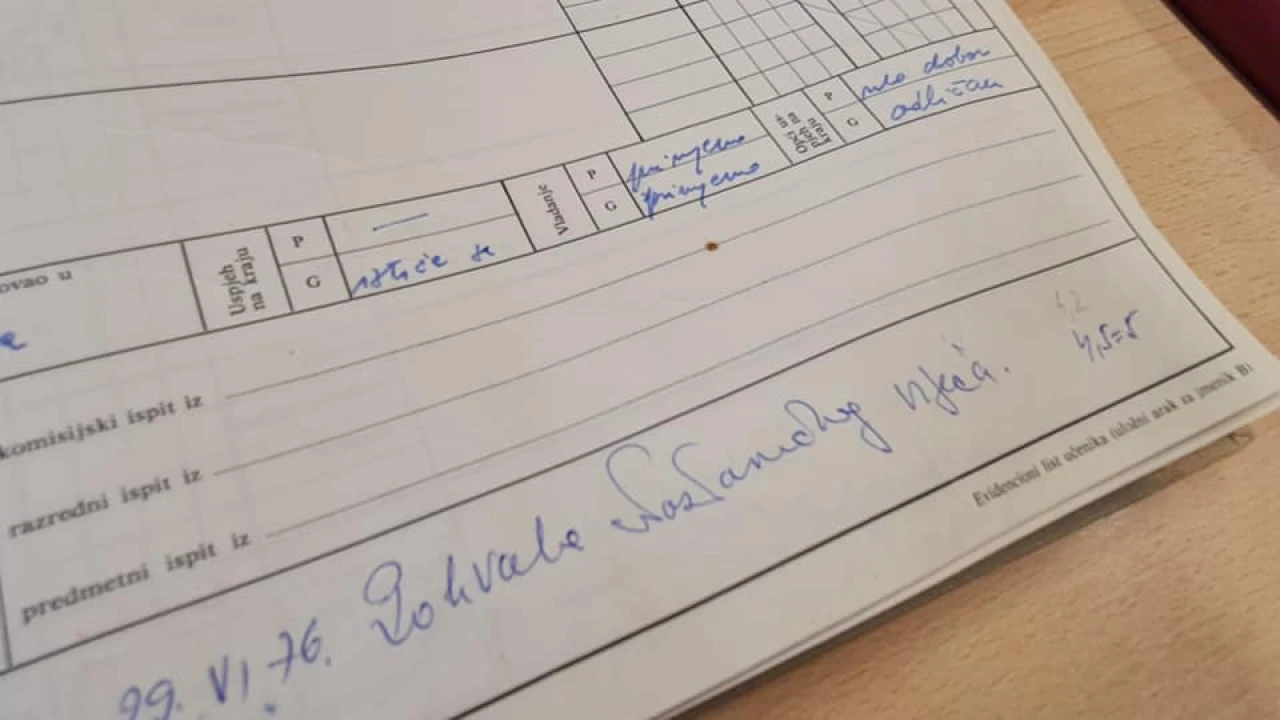 P vrlo dobar
Opći us-
pjeh na
kraju
G odličan
Vladanje
P primjerno
G primjerno
ovao u
Uspjeh
na kraju
P —
G ističe se
komisijski ispit iz
razredni ispit iz
predmetni ispit iz
4,2
4,5=5
29. VI. 76. Pohvala Nastavničkog vijeća.
Evidencioni list učenika (uložni arak za imenik B)